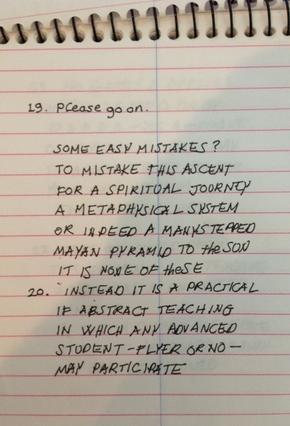 19. Please go on.
SOME EASY MISTAKES?
TO MISTAKE THIS ASCENT
FOR A SPIRITUAL JOURNEY
A METAPHYSICAL SYSTEM
OR INDEED A MANYSTEPPED
MAYAN PYRAMID TO the SUN
IT IS NONE OF theSE
20. INSTEAD IT IS A PRACTICAL
IF ABSTRACT TEACHING
IN WHICH ANY ADVANCED
STUDENT - FLYER OR NO -
MAY PARTICIPATE